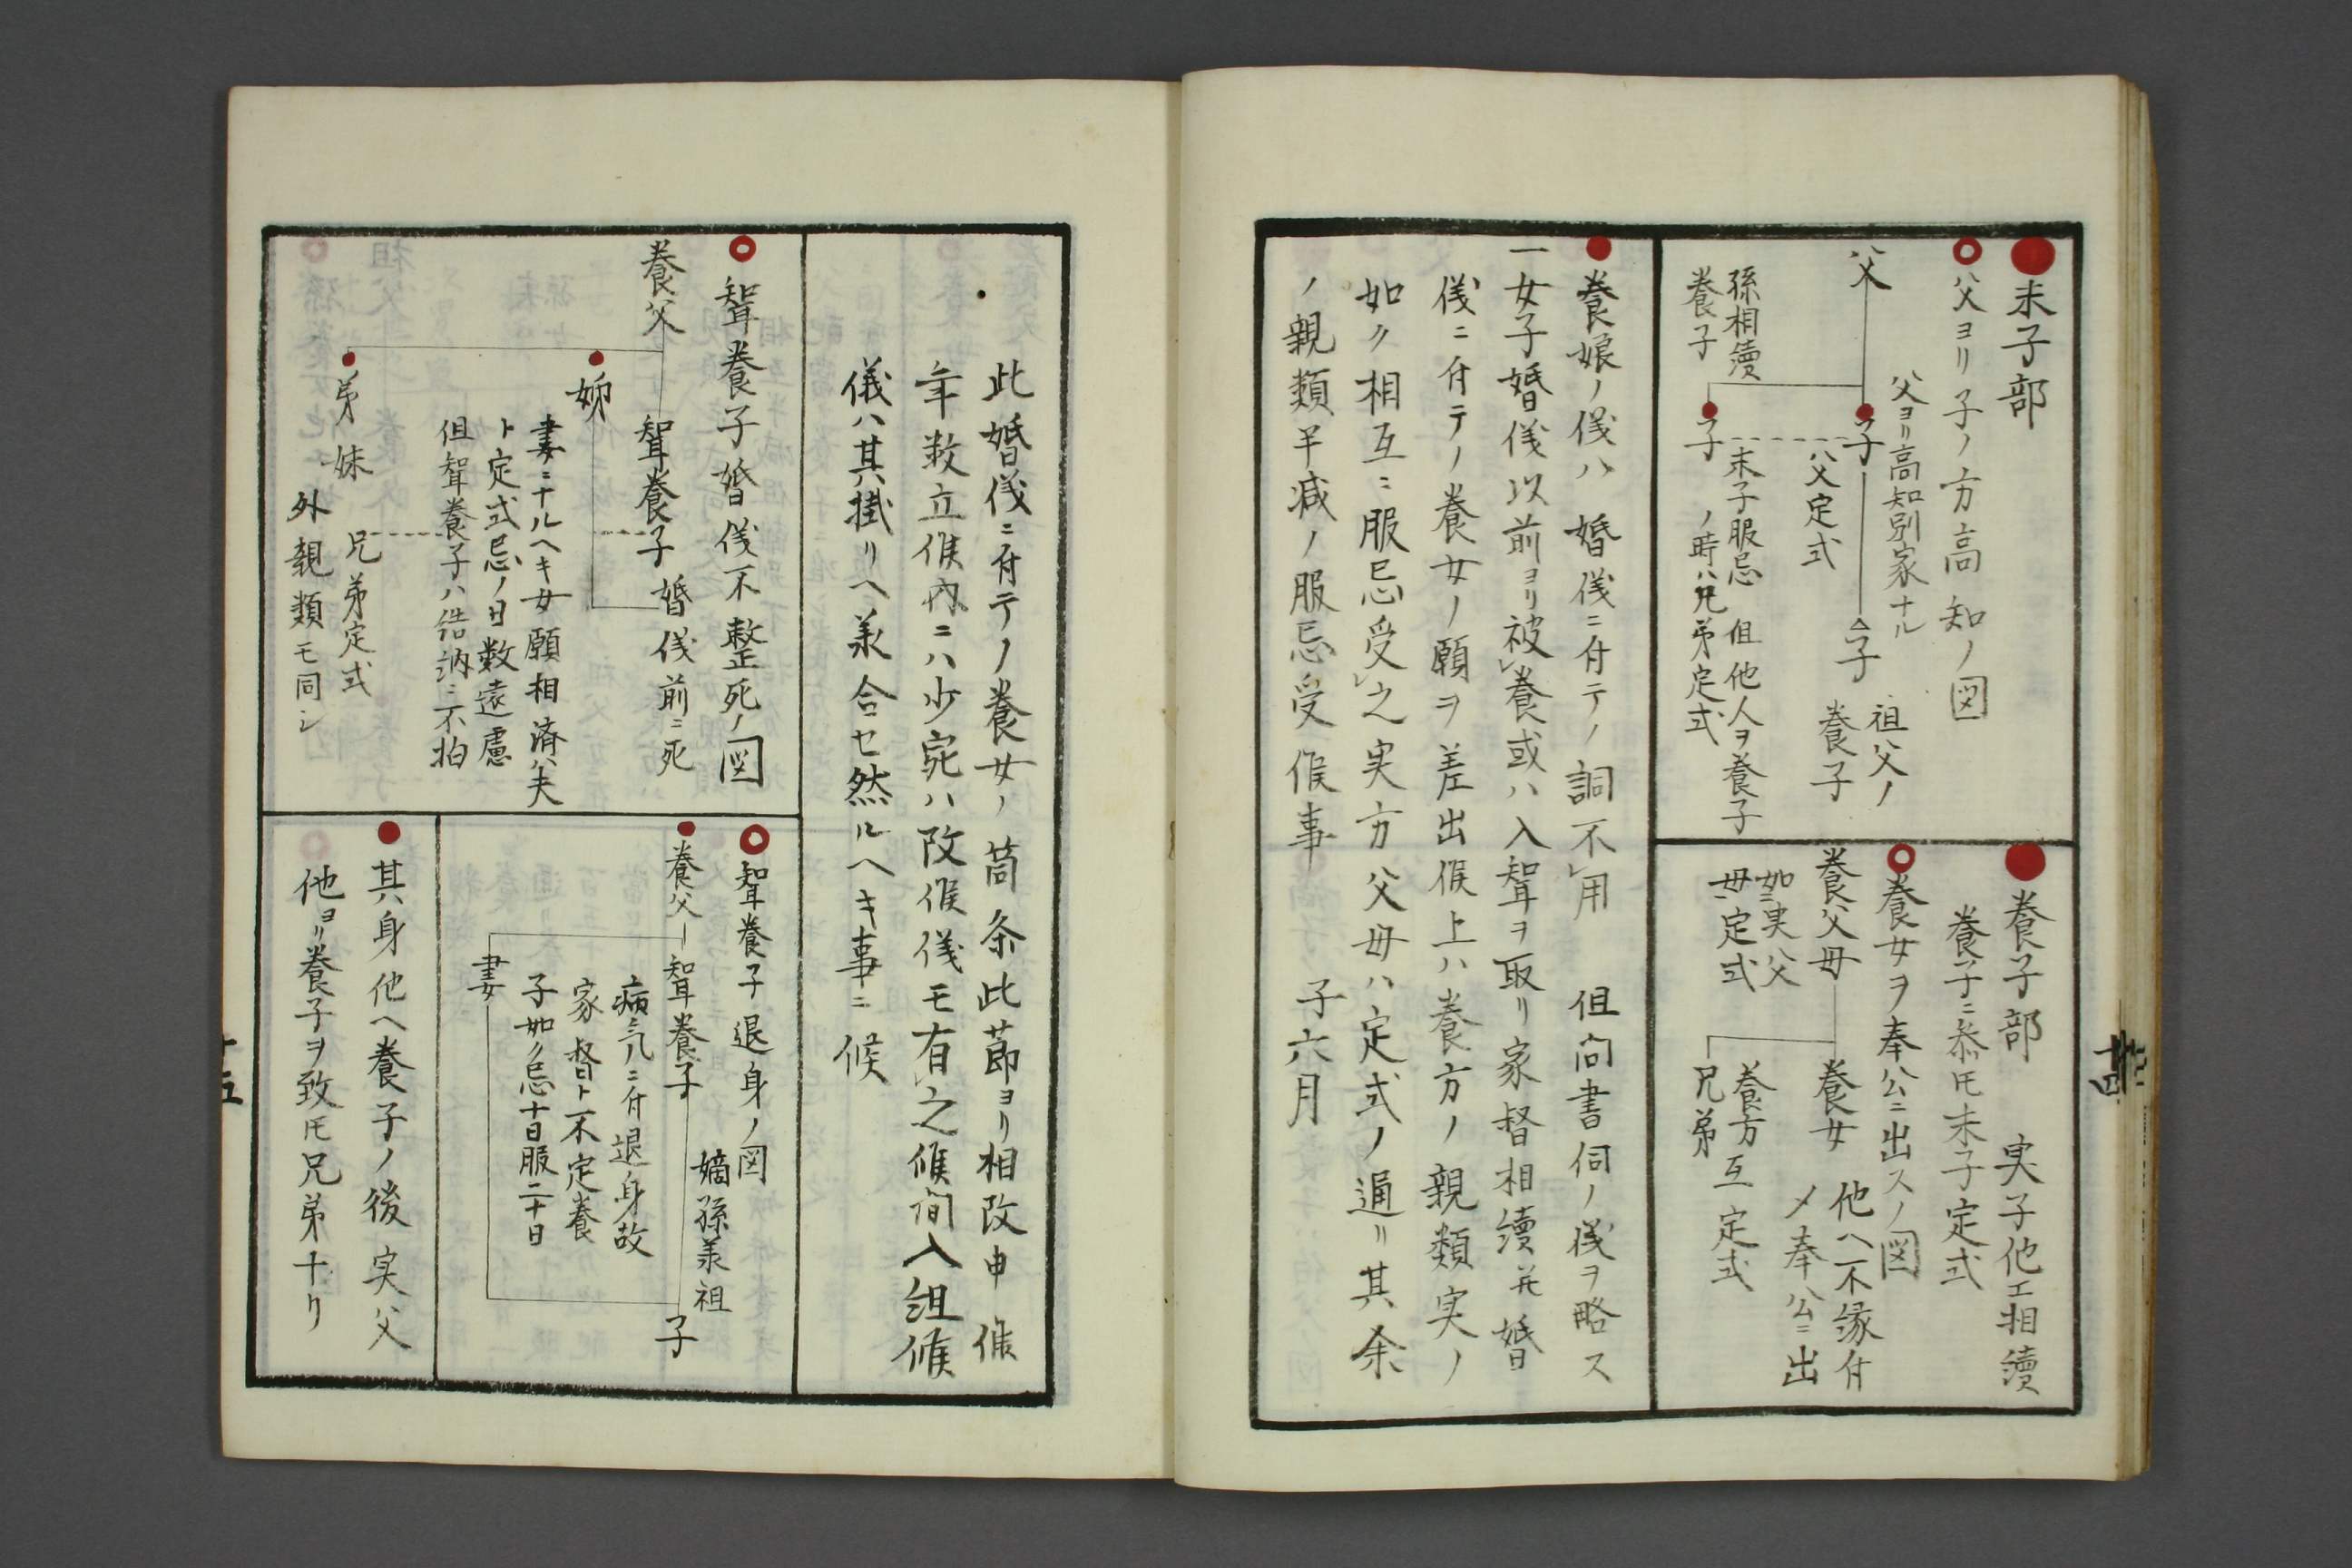 末子部
父ヨリ子ノ方高知ノ図
父ヨリ高知別家ナル
父
子
父定式
子
祖父ノ
養子
孫相續
養子
子
末子服忌 但他人ヲ養子
ノ時ハ兄弟定式
養子部 実子他エ相續
養子ニ参ルモ末子定式
養女ヲ奉公ニ出スノ図
養父母
如実父
母定式
養女
他ヘ不縁付
メ奉公ニ出
養方互定式
兄弟
養娘ノ儀ハ婚儀ニ付テノ詞不レ用 但向書伺ノ儀ヲ略ス
一女子婚儀以前ヨリ被レ養或ハ入聟ヲ取リ家督相續并婚
儀ニ付テノ養女ノ願ヲ差出候上ハ養方ノ親類実ノ
如ク相互ニ服忌受レ之実方父母ハ定式ノ通リ其余
ノ親類半減ノ服忌受候事 子六月
十四
此婚儀ニ付テノ養女ノ箇条此節ヨリ相改申候
年数立候内ニハ少宛ハ改候儀モ有レ之候間入組候
儀ハ其掛リヘ承合セ然ルヘキ事ニ候
聟養子婚儀不整死ノ図
養父
聟養子
婚儀前ニ死
姉
妻ニナルヘキ女願相済ハ夫
ト定式忌ノ日数遠慮
但聟養子ハ結納ニ不拍
弟妹
兄弟定式
外親類モ同シ
聟養子退身ノ図
養父
聟養子
嫡孫承祖
子
病気ニ付退身故
家督ト不定養
子如ク忌十日服二十日
妻
其身他ヘ養子ノ後実父
他ヨリ養子ヲ致モ兄弟ナリ
十五